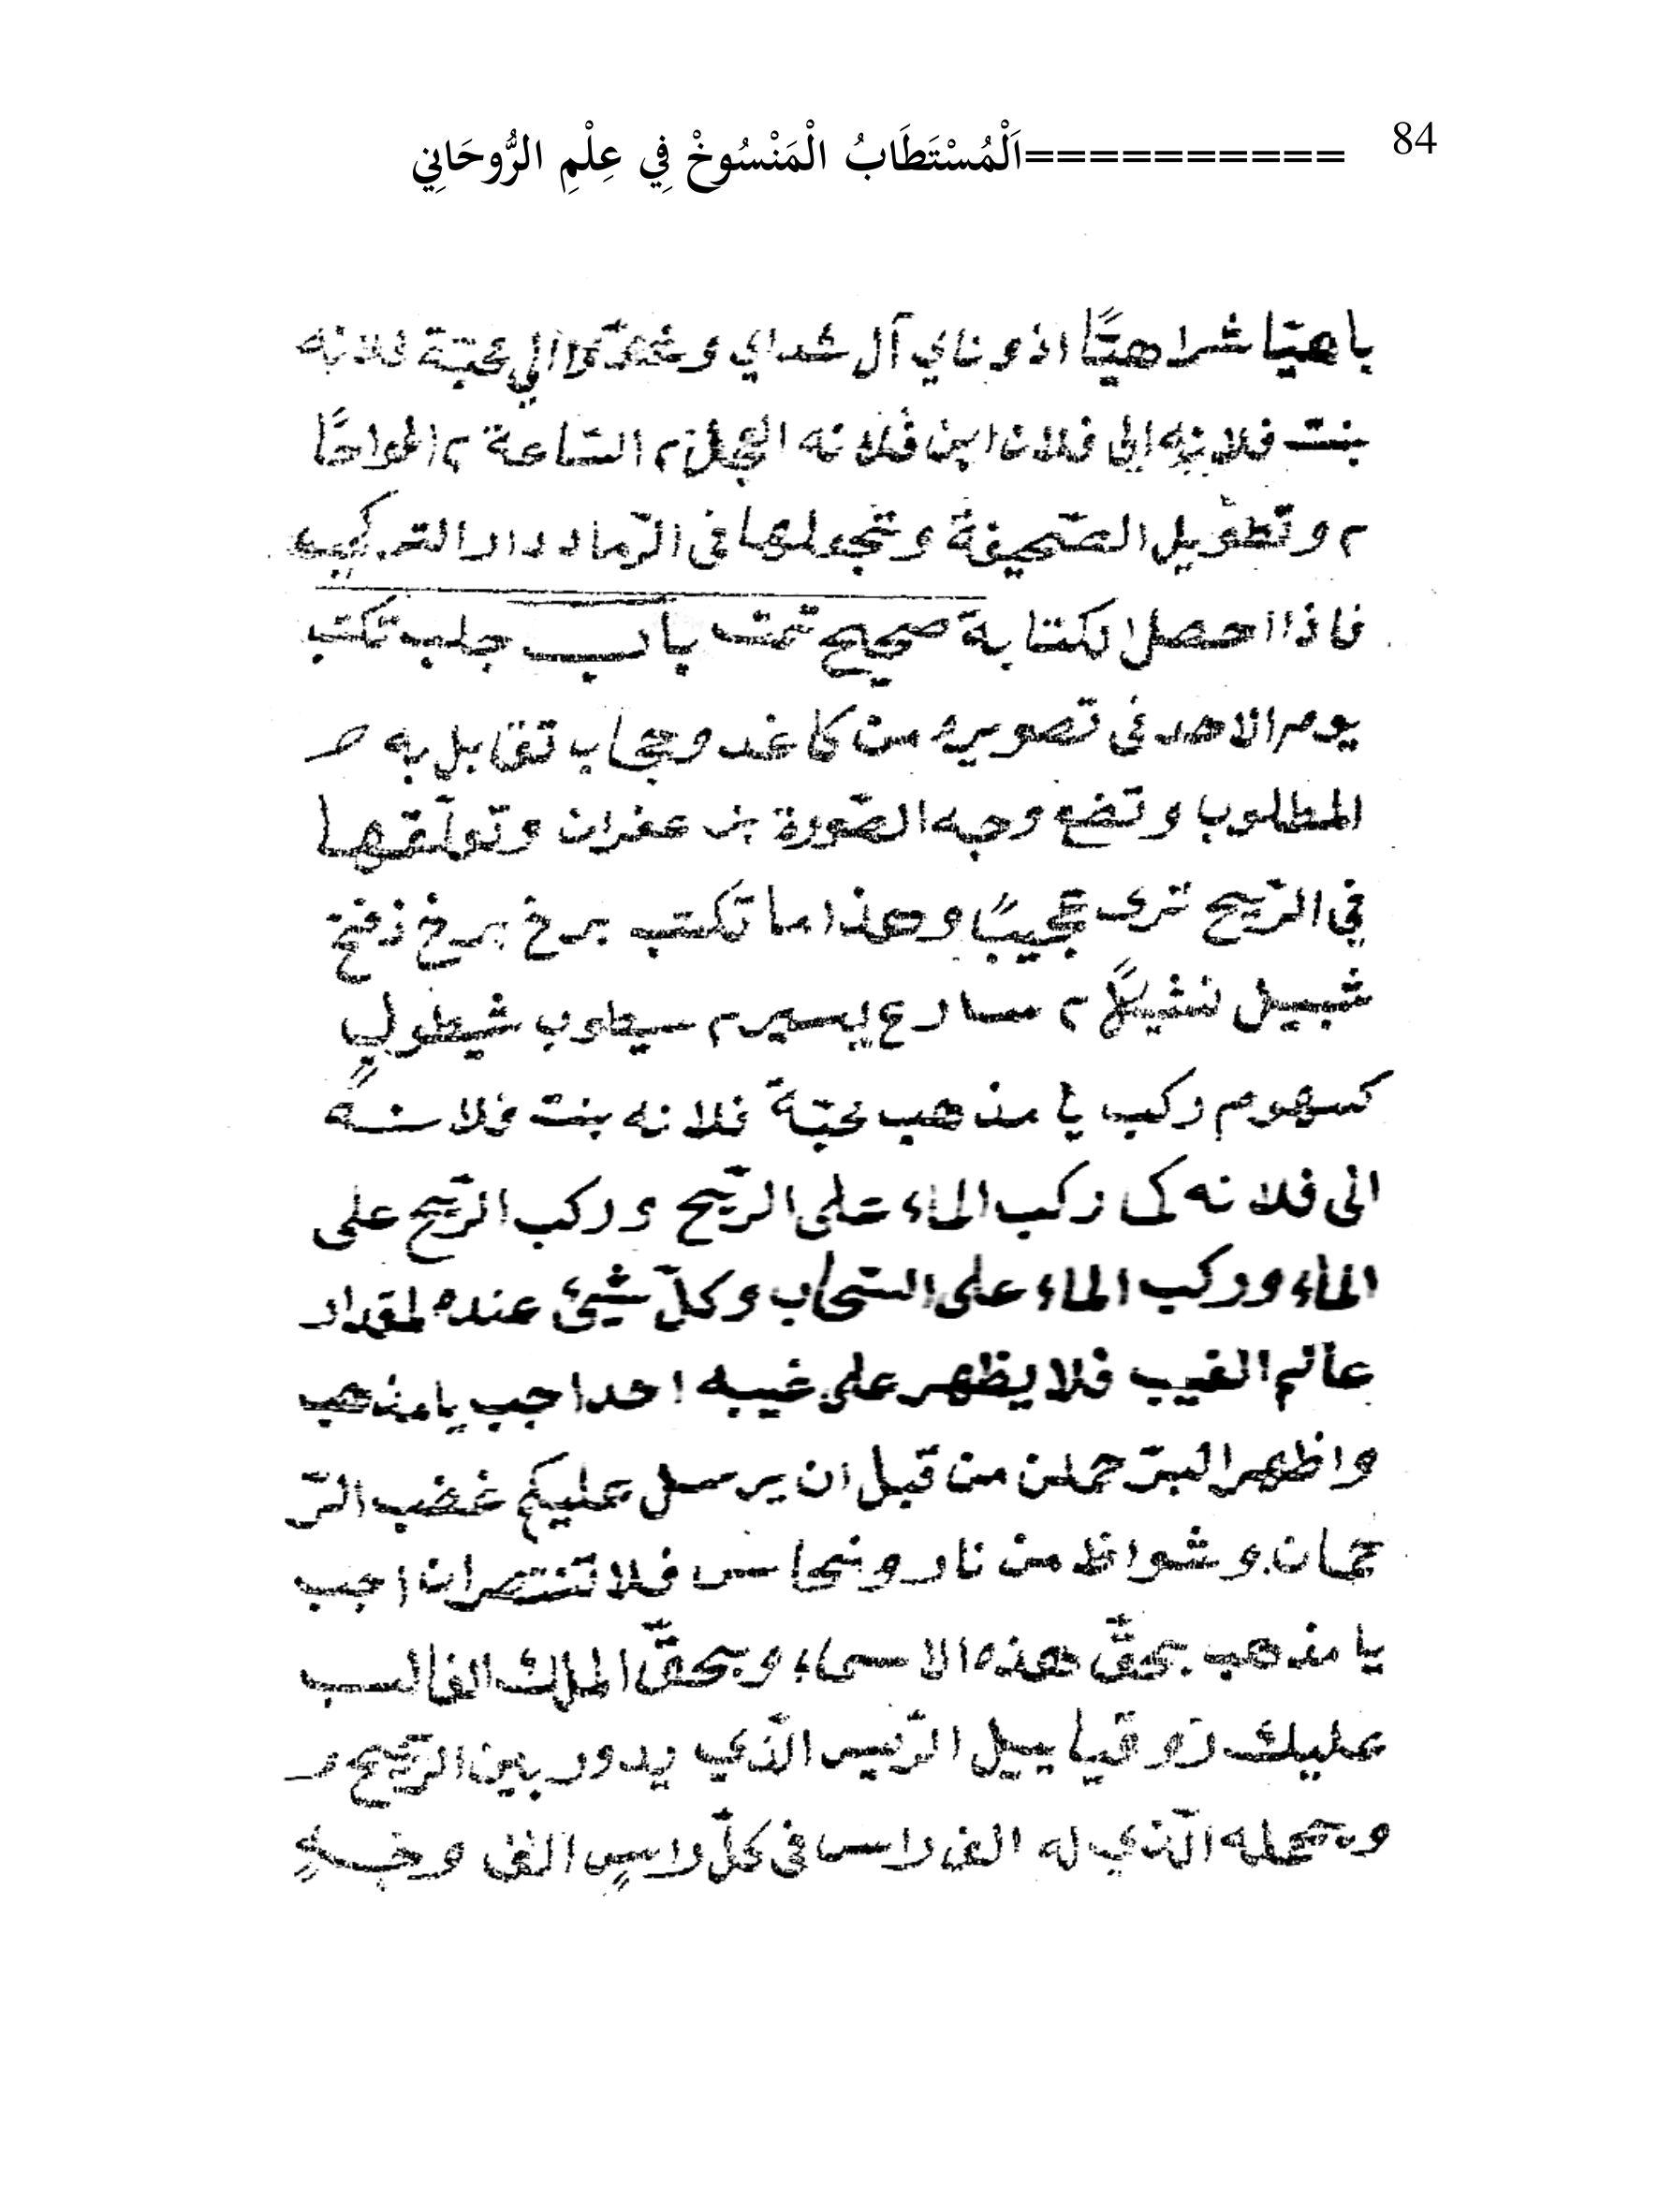 84
اَلْمُسْتَطَابُ الْمَنْسُوخْ فِي عِلْمِ الرُّوحَانِي==========
باهيّا شراهيًّا اذوناي آل شداي و الي محبّة فلانه
بنت فلانه الى فلان ابن فلانه العجل ٢ السّاعة ٢ الواحًا
٢ وتطويل الصّحيفة وتجعلها فى الرّماد دار التركيب
فاذا احصل الكتابة صحيح تمت باب جلب تكتب
يوم الاحد فى تصويره من كاغد وحجاب تقابل به صـ
المطلوب وتضع وجه الصّورة بزعفران وتعلّقها
في الرّيح ترى عجيبًا وهذا ما تكتب برخ برخ
شبيل ٢ سارع يسير ٢ سيطوب شيطولٍ
كسهوم ركب يا مذهب محبّة فلانه بنت فلانـــة
الى فلانه كى ركب الماء على الرّيح وركب الرّيح على
الماء وركب الماء على السّحاب وكلّ شيئ عنده لمقدار
عالم الغيب فلا يظهر على غيبه احدا جب يا مذهب
واظهر البرّ حملن من قبل ان يرسل عليكم غضب الرّ
حمان وشواظ من نار ونحاس فلا تنتصران اجب
يا مذهب بحقّ هذه الاسماء وبحقّ الملك الغالب
عليك روقياييل الرّئيس الّذي يدور بين الرّيح و
ويحمله الّذي له الف راسا فى كلّ راسٍ الف وجـــهٍ